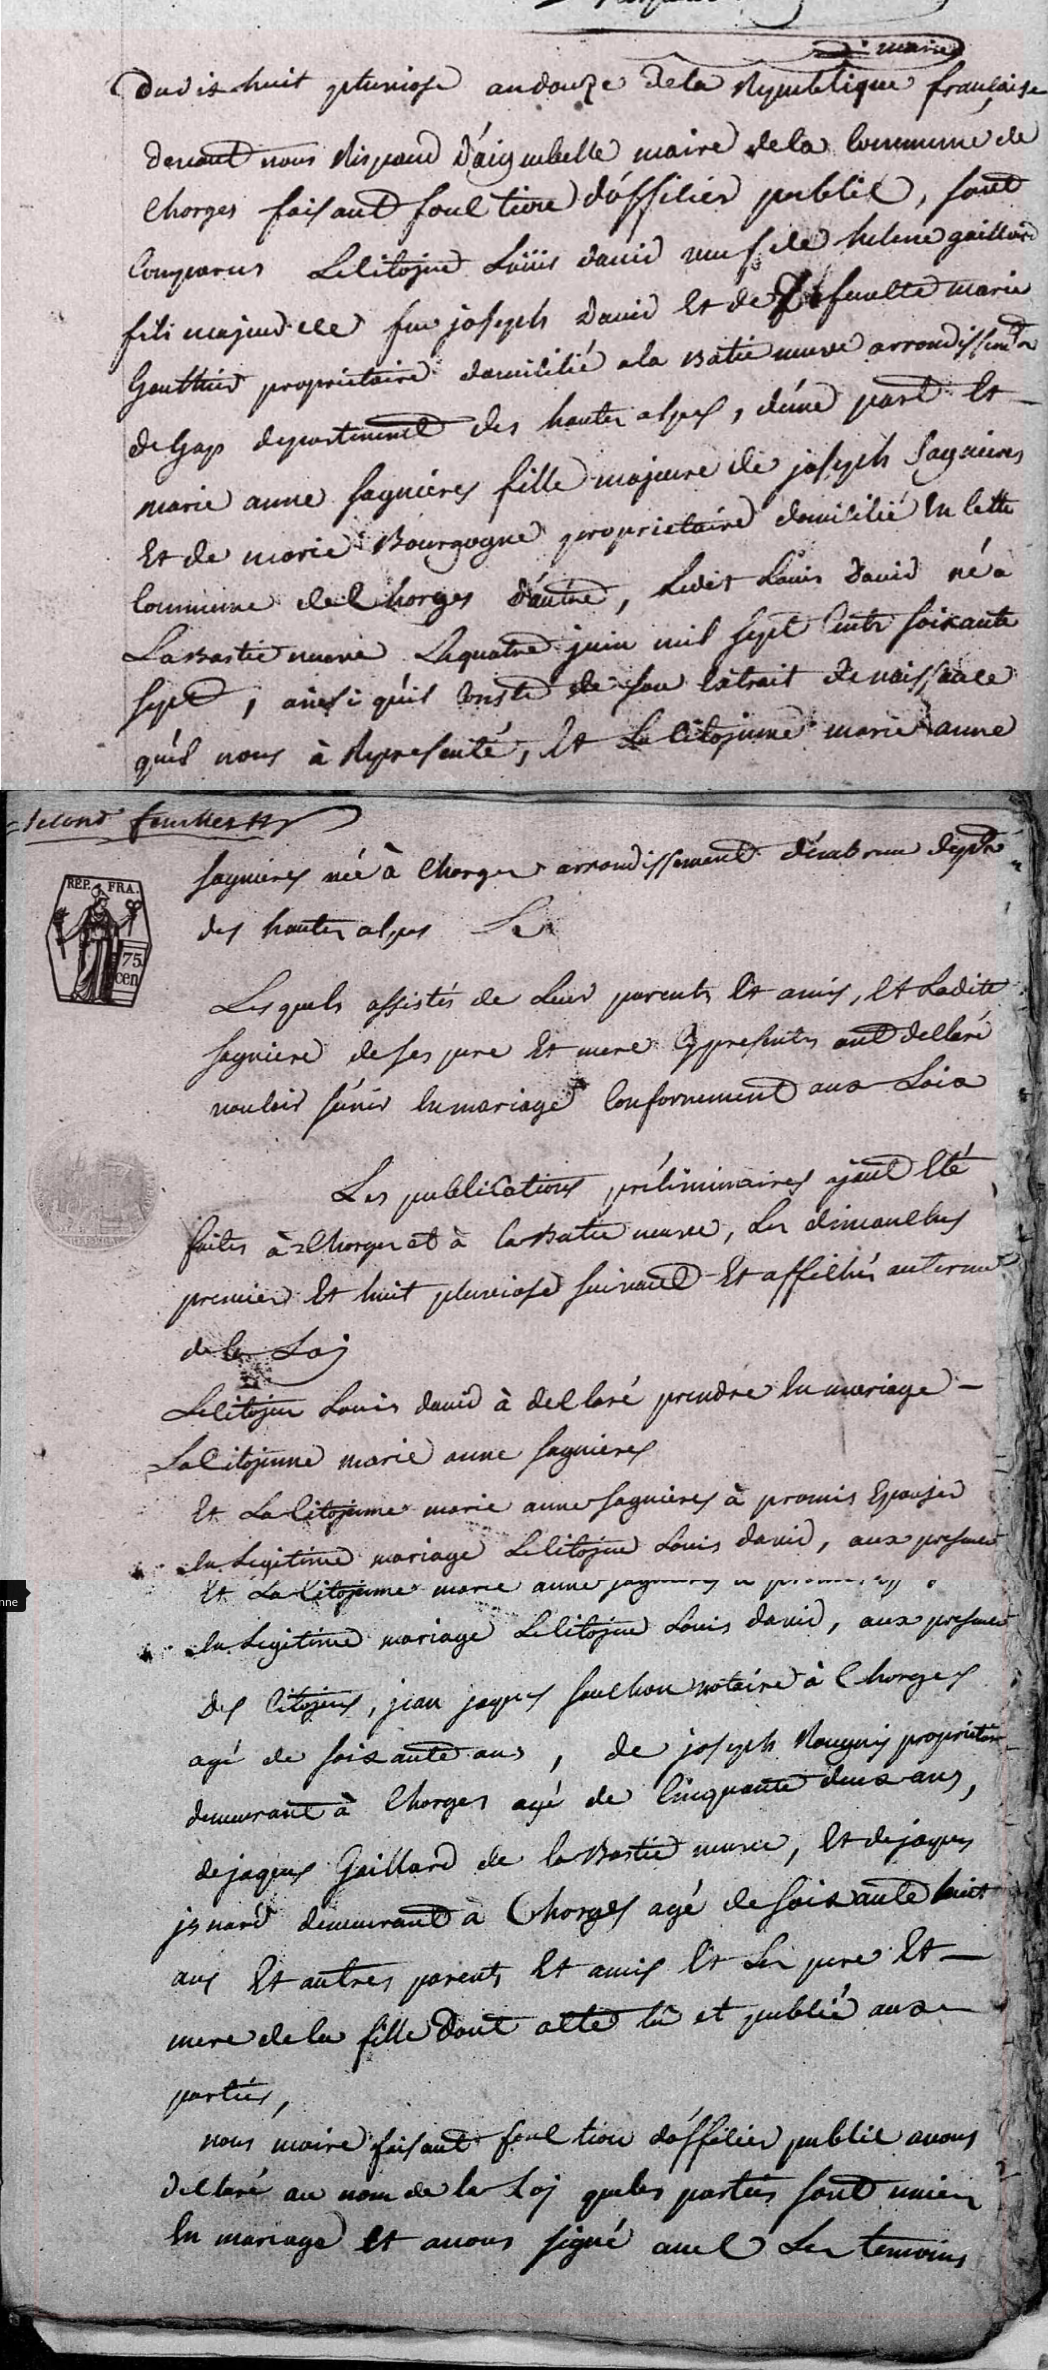 d. maire
Du dix huit pluviose an douze de la Republique française
devant nous Rispaud d'aiguebelle maire de la Commune de
Chorges faisant fonction d'officier public, sont
Comparus Le Citoyen Loüis david veuf de helene gaillard
fils majeur de feu joseph David Et de defunte marie
Gauthier proprietaire domicilié a la Batie neuve arrondissemt
de Gap departement des hautes alpes, d'une part Et
marie anne sagnieres fille majeure de joseph sagnieres
Et de marie Bourgogne proprietaire domicilié En cette
Commune de Chorges d'autre, Ledit Louis David né a
La Bastie neuve Le quatre juin mil sept Cents soixante
sept, ainsi qu'il Conste de son Extrait de naissance
qu'il nous à Representé, Et La Citoyenne marie anne
second feuillet
REP. FRA.
75 cen
sagnieres née à Chorges arrondissement d'embrun depte
des hautes alpes Le
Les quels assistés de Leur parents Et amis, Et Ladite
sagniere de ses pere Et mere Cy presents ont declaré
vouloir s'unir En mariage Conformement aux Loix
Les publications préliminaires ayant Eté
faites à Chorges et à la Batie neuve, Les dimanches
premier Et huit pluviose suivant Et affichés au terme
de la Loy
Le Citoyen Louis david à declaré prendre En mariage
La Citoyenne marie anne sagnieres
Et La Citoyenne marie anne sagnières à promis Epouser
En Legitime mariage Le Citoyen Louis david, aux presence
Et La Citoyenne marie anne
En Legitime mariage Le Citoyen Louis david, aux presence
Des Citoyens, jean jaques souchon notaire à Chorges
agé de soixante ans, de joseph Rougny proprietaire
demeurant à Chorges agé de Cinquante deux ans,
de jaques Gaillard de la Bastie neuve, Et de jaques
jsnard demeurant à Chorges agé de soixante huit
ans Et autres parents Et amis Et Les pere Et
mere de la fille Dont acte lû et publié aux
parties,
nous maire faisant fonction d'officier public avons
declaré au nom de la Loy que les parties sont unies
En mariage et avons signé avec Les temoins